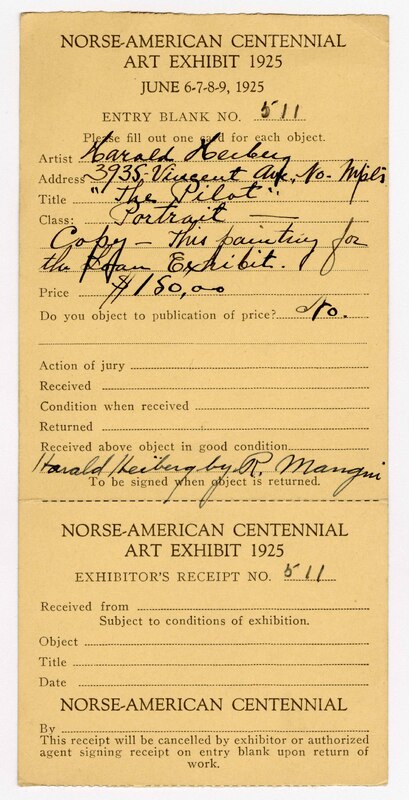 NORSE-AMERICAN CENTENNIAL
ART EXHIBIT 1925
JUNE 6-7-8-9, 1925
ENTRY BLANK NO. 511
Please fill out one card for each object.
Artist Harald Heiberg
Address 3935-Vincent Ave. No. Mpls
Title "The Pilot"
Class: Portrait —
Copy — This painting for
the Loan Exhibit.
Price $150.00
Do you object to publication of price? No.
Action of jury
Received
Condition when received
Returned
Received above object in good condition
Harald Heiberg by R. Mangini
To be signed when object is returned.
NORSE-AMERICAN CENTENNIAL
ART EXHIBIT 1925
EXHIBITOR'S RECEIPT NO. 511
Received from
Subject to conditions of exhibition.
Object
Title
Date
NORSE-AMERICAN CENTENNIAL
By
This receipt will be cancelled by exhibitor or authorized
agent signing receipt on entry blank upon return of
work.